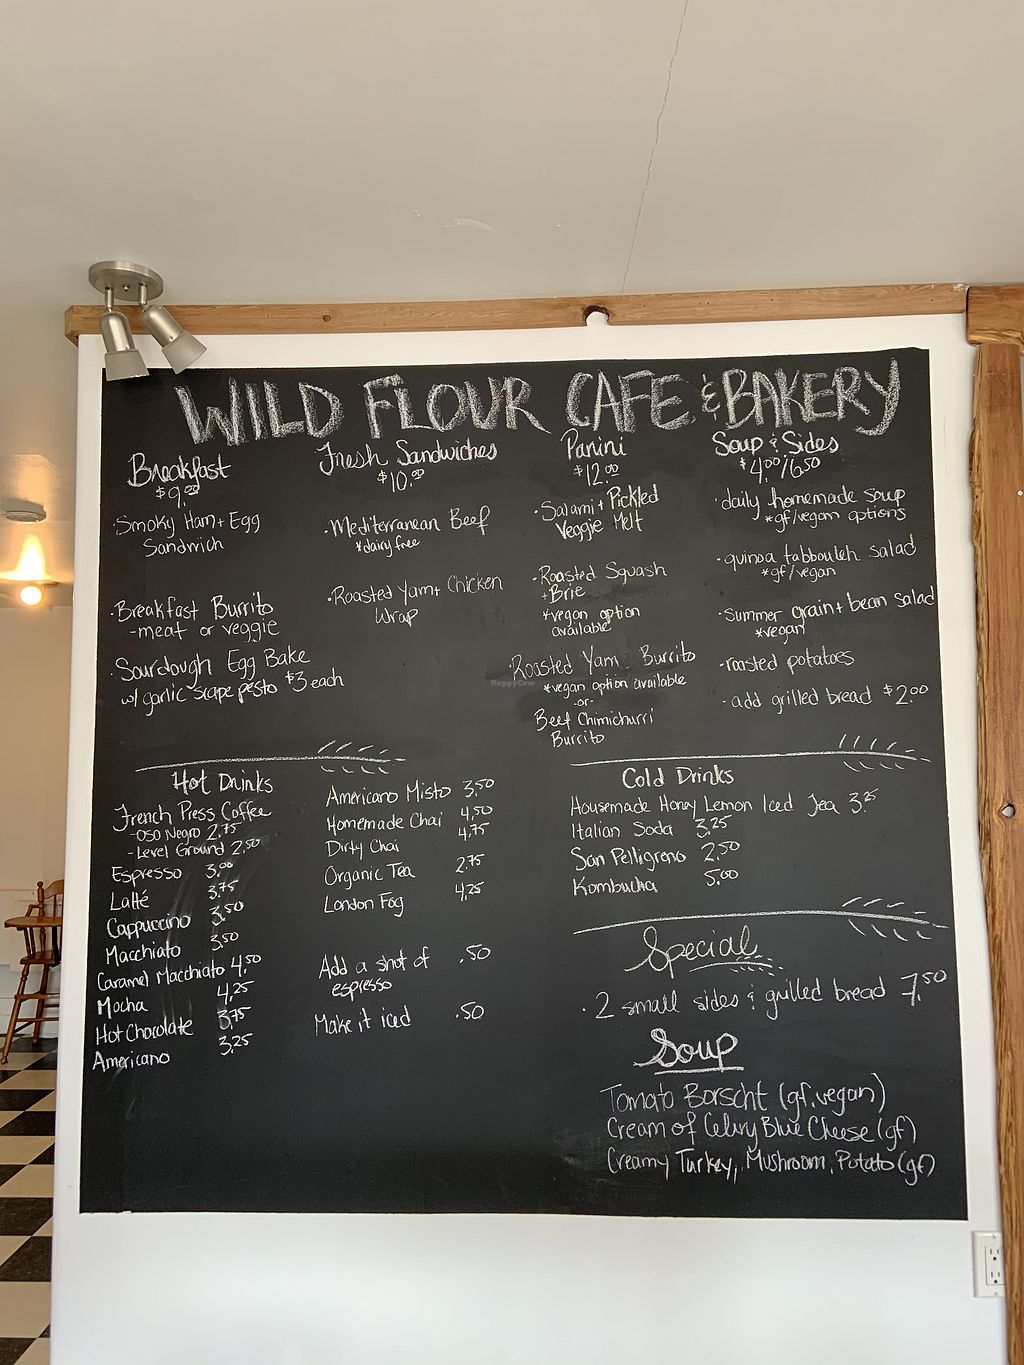 WILD FLOUR CAFE & BAKERY
Breakfast
$9.00
·Smoky Ham + Egg
Sandwich
·Breakfast Burrito
-meat or veggie
·Sourdough Egg Bake
w/ garlic scape pesto $3 each
Fresh Sandwiches
$10.00
·Mediterranean Beef
*dairy free
·Roasted Yam + Chicken
Wrap
Panini
$12.00
·Salami + Pickled
Veggie Melt
·Roasted Squash
+ Brie
*vegan option
available
Roasted Yam Burrito
*vegan option available
-or-
Beef Chimichurri
Burrito
Soup & Sides
$4.00/6.50
·daily homemade soup
*gf/vegan options
·quinoa tabbouleh salad
*gf/vegan
·Summer grain + bean salad
*vegan
-roasted potatoes
-add grilled bread $2.00
Hot Drinks
French Press Coffee
-Oso Negro 2.75
-Level Ground 2.50
Espresso 3.00
Latté 3.75
Cappuccino 3.50
Macchiato 3.50
Caramel Macchiato 4.50
Mocha 4.25
Hot Chocolate 3.75
Americano 3.25
Americano Misto 3.50
Homemade Chai 4.50
Dirty Chai 4.75
Organic Tea 2.75
London Fog 4.25
Add a shot of .50
espresso
Make it iced .50
Cold Drinks
Housemade Honey Lemon Iced Tea 3.25
Italian Soda 3.25
San Pelligreno 2.50
Kombucha 5.00
Special
·2 small sides & grilled bread 7.50
Soup
Tomato Borscht (gf, vegan)
Cream of Celery Blue Cheese (gf)
Creamy Turkey, Mushroom, Potato (gf)
HappyCow